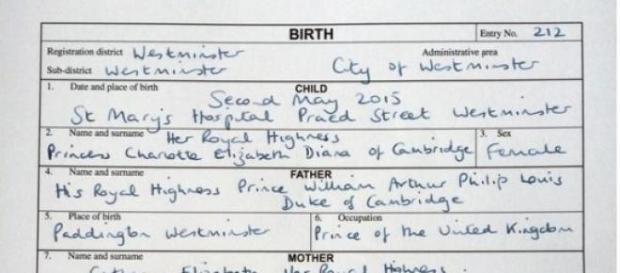 BIRTH Entry No. 212
Registration district Westminster Administrative area
Sub-district Westminster City of Westminster
1. Date and place of birth CHILD
Second May 2015
St Mary's Hospital Praed Street Westminster
2. Name and surname Her Royal Highness 3. Sex
Princess Charlotte Elizabeth Diana of Cambridge Female
4. Name and surname FATHER
His Royal Highness Prince William Arthur Philip Louis
Duke of Cambridge
5. Place of birth 6. Occupation
Paddington Westminster Prince of the United Kingdom
7. Name and surname MOTHER
Elizabeth Her Royal Highness